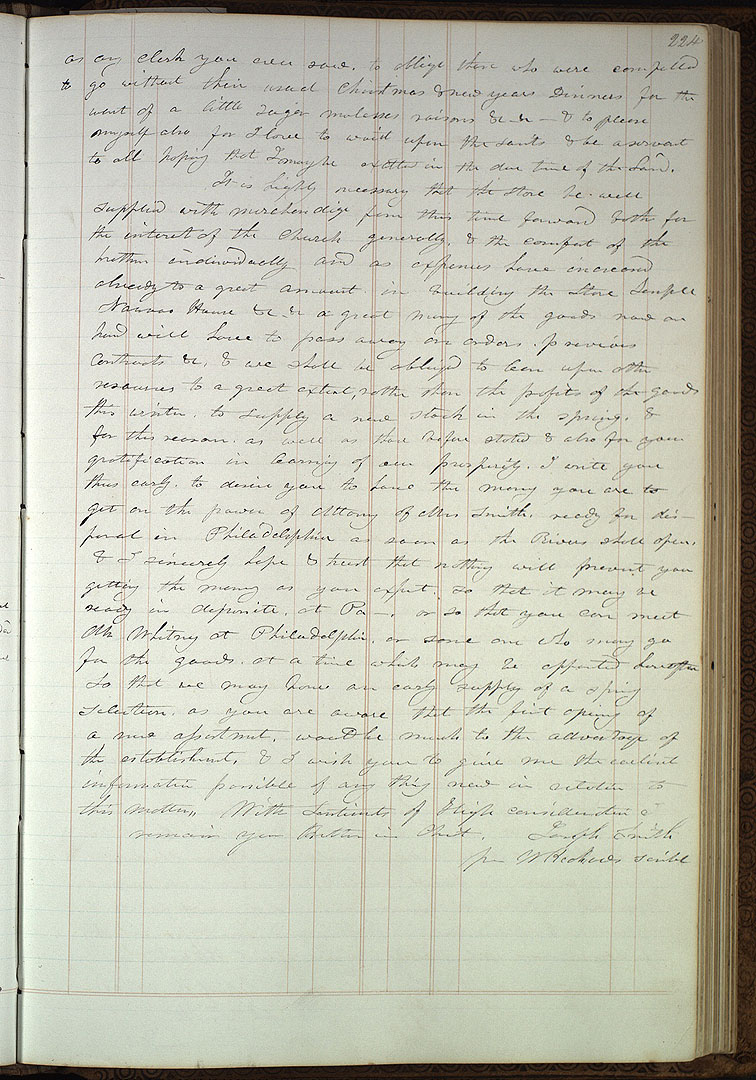 224
as any clerk you ever saw. to oblige those who were compelled
to go without their usual Christmas & New years Dinners for the
want of a little sugar molasses raisons &c &c — & to please
myself also for I love to waid upon the Saints & be a servant
to all hoping that I may be exalted in the due time of the Lord.
It is highly necessary that the store be well
supplied with merchandize from this time forward both for
the interest of the Church generally, & the comfort of the
brethren individually and as expenses have increased
already to a great amount in building the Store Temple
Nauvoo House &c &c a great many of the goods now on
hand will have to pass away on orders. previous
contracts &c, & we shall be obliged to lean upon other
resources to a great extent, rather than the profits of the goods
this winter. to supply a new stock in the spring, &
for this reason. as well as those before stated & also for your
gratification in learning of our prosperity. I write you
thus early. to desire you to have the money you are to
get on the power of Attorny of Mrs Smith, ready for dis-
posal in Philadelphia as soon as the Rivers shall open,
& I sincerely hope & trust that nothing will prevent you
getting the money as you expect. so that it may be
ready in deposite. at Pa—. or so that you can meet
Mr Whitney at Philadelphia. or some one who may go
for the goods. at a time which may be appointed hereafter
so that we may have an early supply of a spring
selection. as you are aware that the first opening of
a new assortment, would be much to the advantage of
the establishment, & I wish you to give me the earliest
information possible of any thing new in relation to
this matter,, With Sentiments of High consideration I
remain your brother in Christ, Joseph Smith
per W Richards scribe